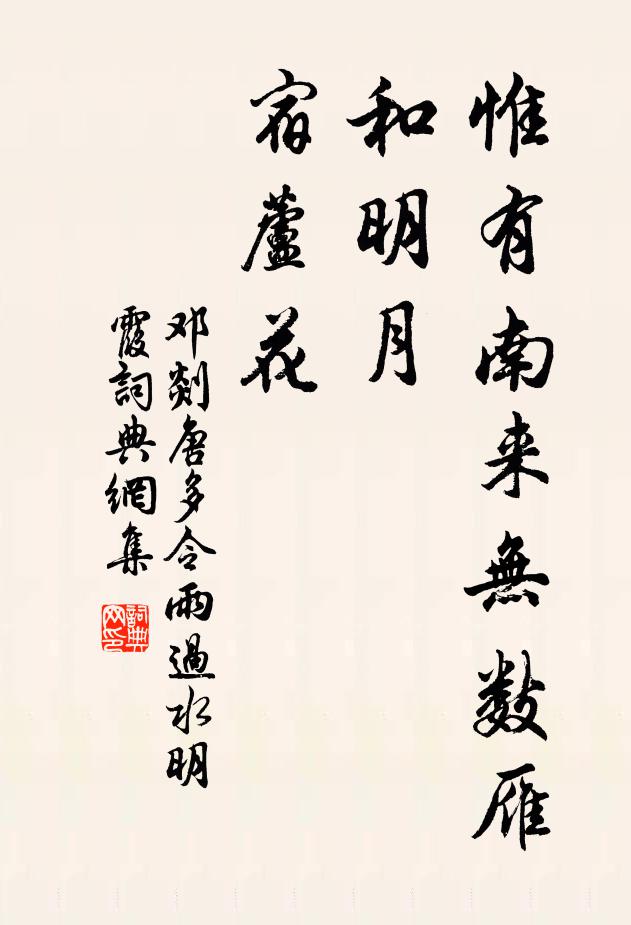 惟有南来無数雁
和明月
宿蘆花
邓剡唐多令雨過水明
霞詞典網集
詞典
网印